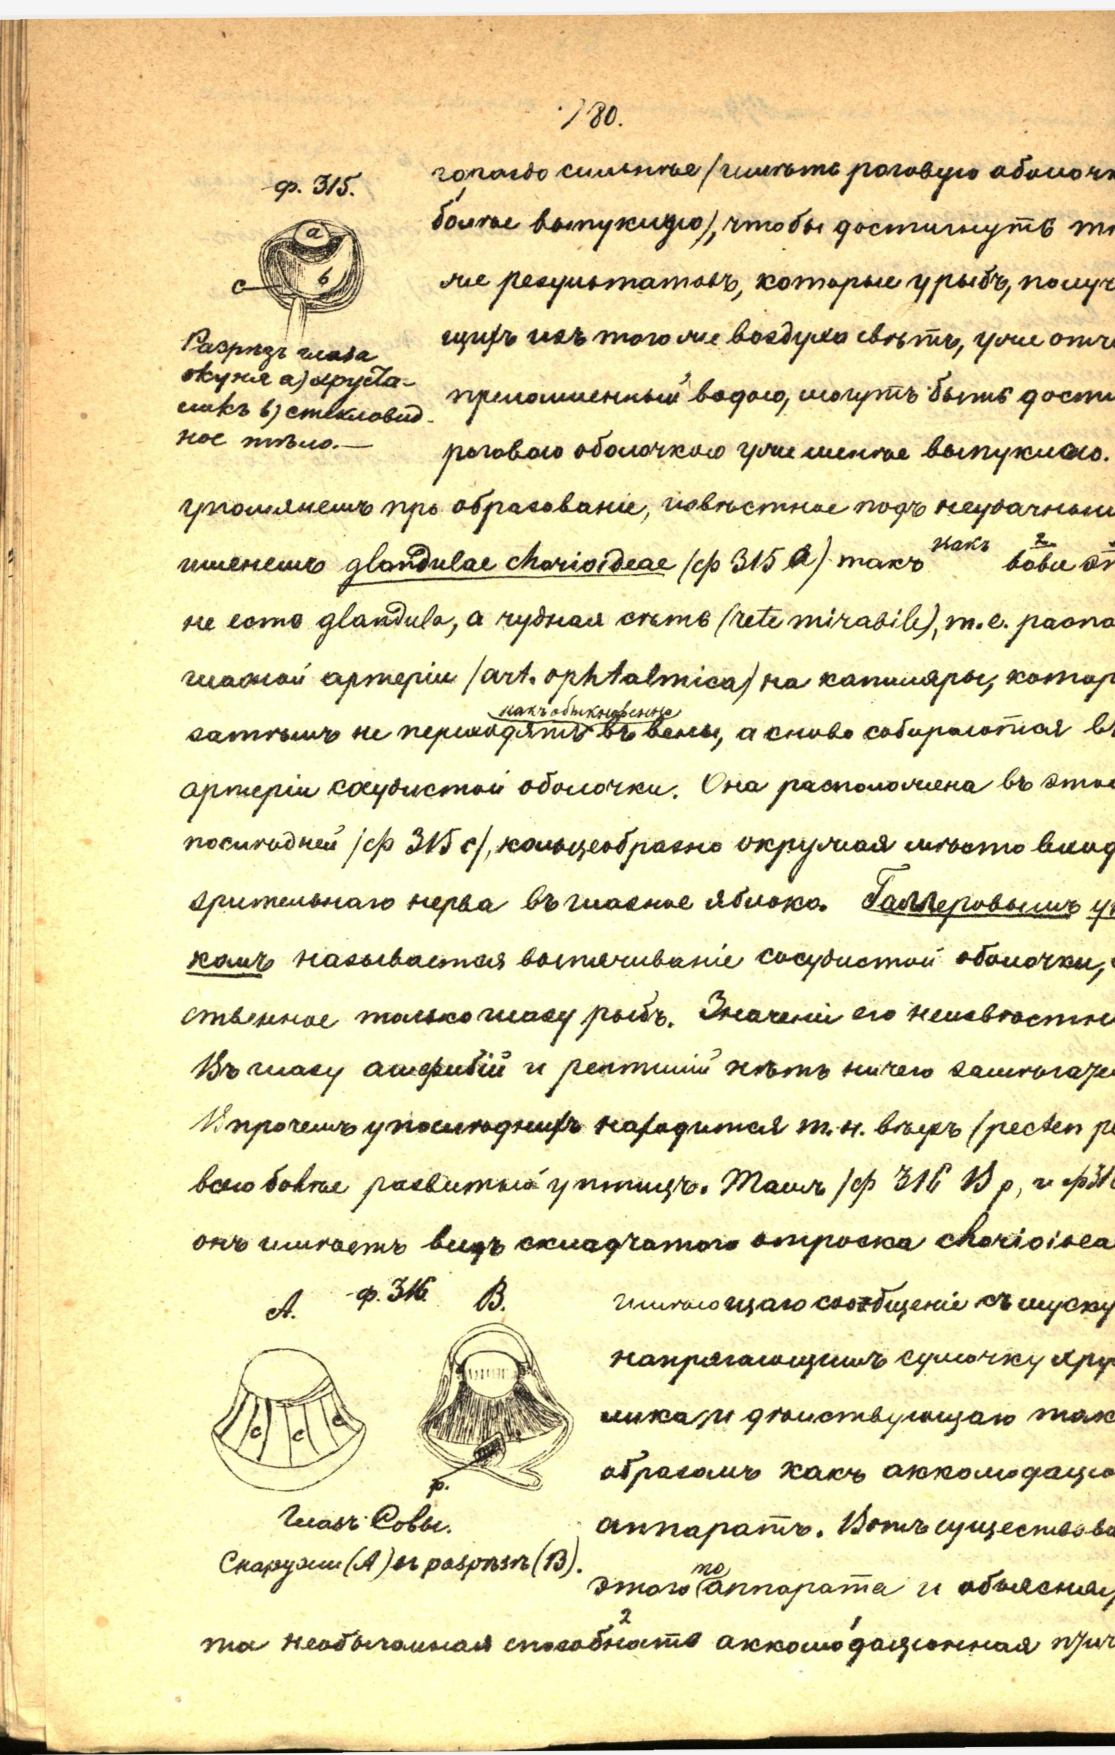 780.
ф. 315.
a
b
c
Разрѣзъ глаза
окуня а) хруста-
ликъ b) стекловид-
ное тѣло.—
гораздо сильнѣе (имѣть роговую оболочк
болѣе выпуклую), чтобы достигнуть т
же результатовъ, которые у рыбъ, получ
щихъ изъ того же воздуха свѣтъ, уже отча
преломленный водою, могутъ быть дости
роговою оболочкою уже менѣе выпуклою.
упомянемъ про образованіе, извѣстное подъ неудачным
именемъ glandulae chorioideae (ф 315 с) такъ какъ
не есть glandula, а чудная сѣть (rete mirabile), т.е. распа
глазной артеріи (art. ophtalmica) на капиляры, котор
затѣмъ не переходятъ какъ обыкновенно въ вены, а снова собираются въ
артеріи сосудистой оболочки. Она расположена въ этой
послѣдней (ф 315 с), кольцеобразно окружая мѣсто вход
зрительнаго нерва въ глазное яблоко. Галлеровымъ
комъ называется выпячиваніе сосудистой оболочки,
ственное только глазу рыбъ. Значеніе его неизвѣстн
Въ глазу амфибій и рептилій нѣтъ ничего замѣчате
Впрочемъ у послѣднихъ находится т.н. вѣеръ (pecten
всего болѣе развитый у птицъ. Тамъ (ф 316 В p, и ф 316
онъ имѣетъ видъ складчатаго отростка chorioidea
ф. 316.
А.
В.
c c c
p.
Глазъ Совы.
Снаружи (А) въ разрѣзѣ (В).
имѣющаго сообщеніе съ муску
напрягающимъ сумочку хру
лика, и дѣйствующаго так
образомъ какъ аккомодаціо
аппаратъ. Вотъ существова
этого то аппарата и объясняе
та необычайная способность 2 аккомодаціонная 1